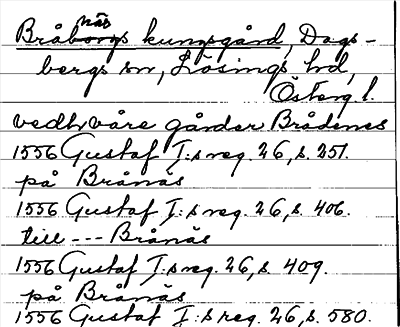 näs
Bråborgs kungsgård, Dags-
bergs sn, Lösings hd,
Österg l.
vedh våre gårder Brådenes
1556 Gustaf I:s reg. 26, s. 251.
på Brånäs
1556 Gustaf I:s reg. 26, s. 406.
till --- Brånäs
1556 Gustaf I:s reg. 26, s. 409.
på Brånäs
1556 Gustaf I:s reg. 26, s. 580.